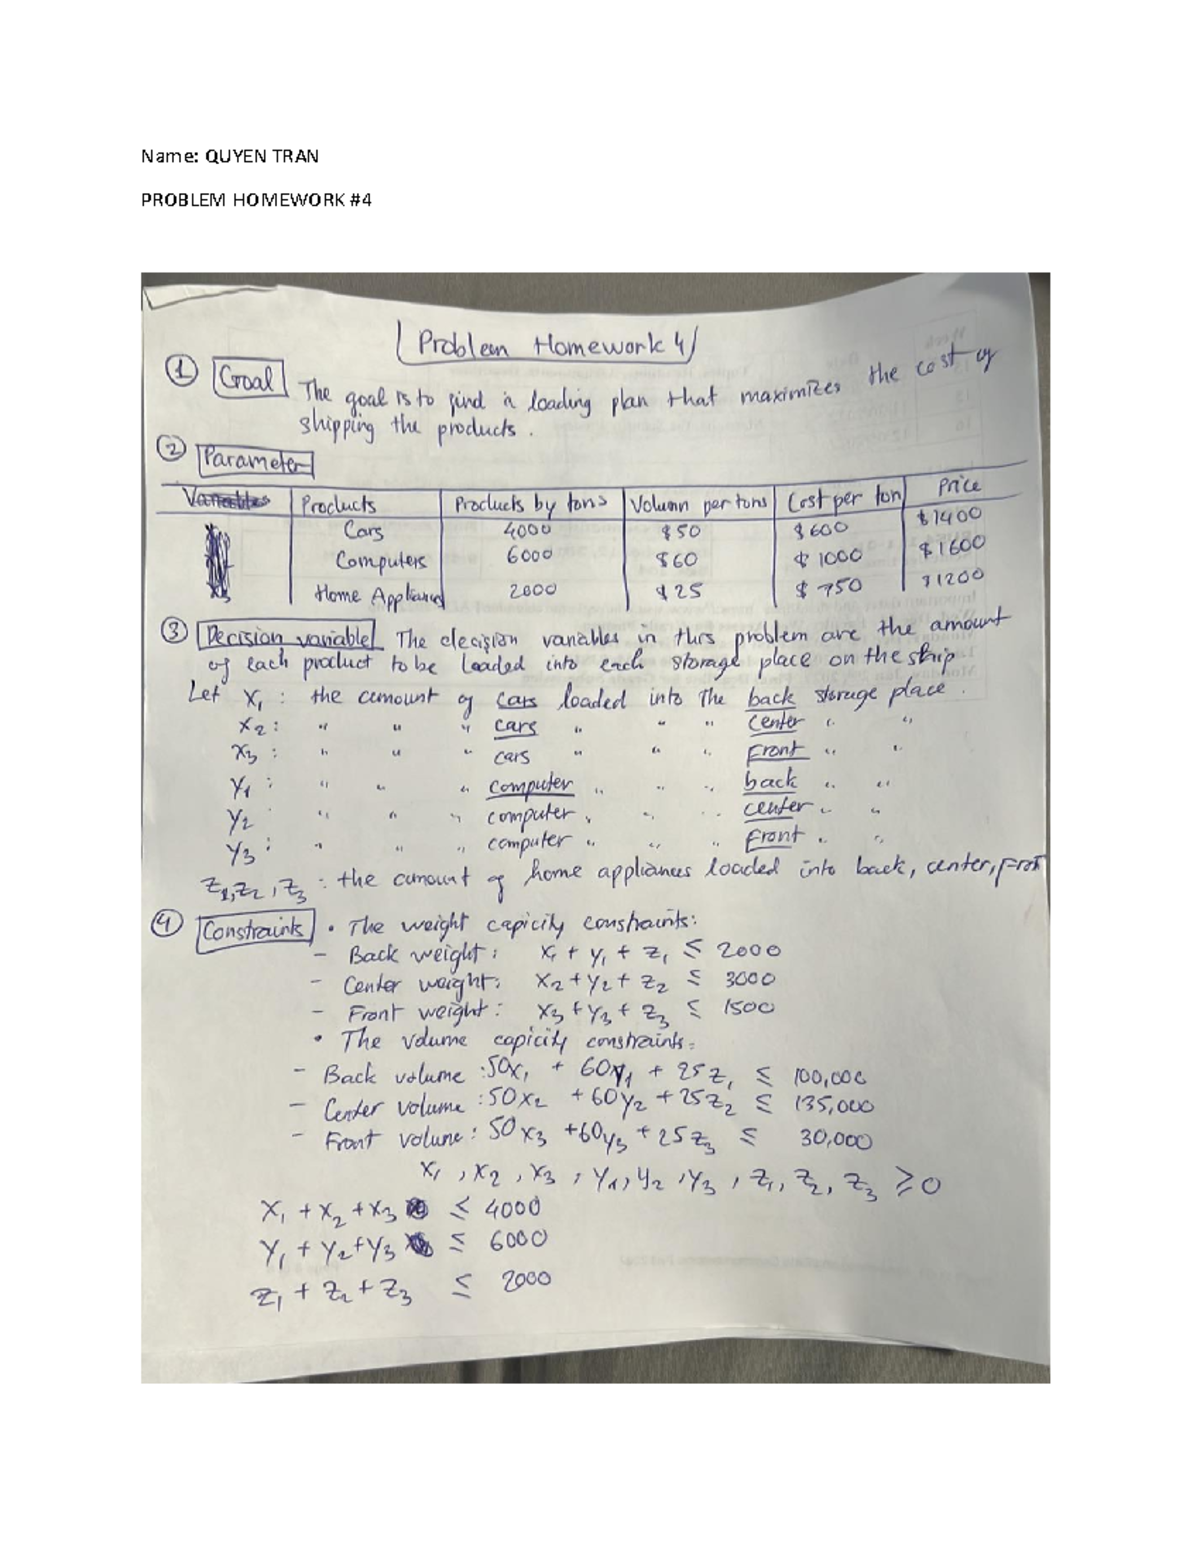 Name: QUYEN TRAN
PROBLEM HOMEWORK #4
Problem Homework 4
① Goal The goal is to find a loading plan that maximizes the cost of
shipping the products.
② Parameter
Variables Products Products by tons Volumn per tons Cost per ton Price
Cars 4000 $50 $600 $1400
Computers 6000 $60 $1000 $1600
X3 Home Appliances 2000 $25 $750 $1200
③ Decision variable The decision variables in this problem are the amount
of each product to be loaded into each storage place on the ship
Let X1 : the amount of cars loaded into the back storage place.
X2 : " " " cars " " " center " "
X3 : " " " cars " " " Front " "
Y1 : " " " computer " " " back " "
Y2 : " " " computer " " " center " "
Y3 : " " " computer " " " Front " "
Z1, Z2, Z3 : the amount of home appliances loaded into back, center, front
④ Constraints • The weight capicity constraints:
- Back weight: X1 + Y1 + Z1 ≤ 2000
- Center weight: X2 + Y2 + Z2 ≤ 3000
- Front weight: X3 + Y3 + Z3 ≤ 1500
• The volume capicity constraints:
- Back volume : 50X1 + 60Y1 + 25Z1 ≤ 100,000
- Center volume : 50X2 + 60Y2 + 25Z2 ≤ 135,000
- Front volume : 50X3 + 60Y3 + 25Z3 ≤ 30,000
X1, X2, X3, Y1, Y2, Y3, Z1, Z2, Z3 ≥ 0
X1 + X2 + X3 ≤ 4000
Y1 + Y2 + Y3 ≤ 6000
Z1 + Z2 + Z3 ≤ 2000